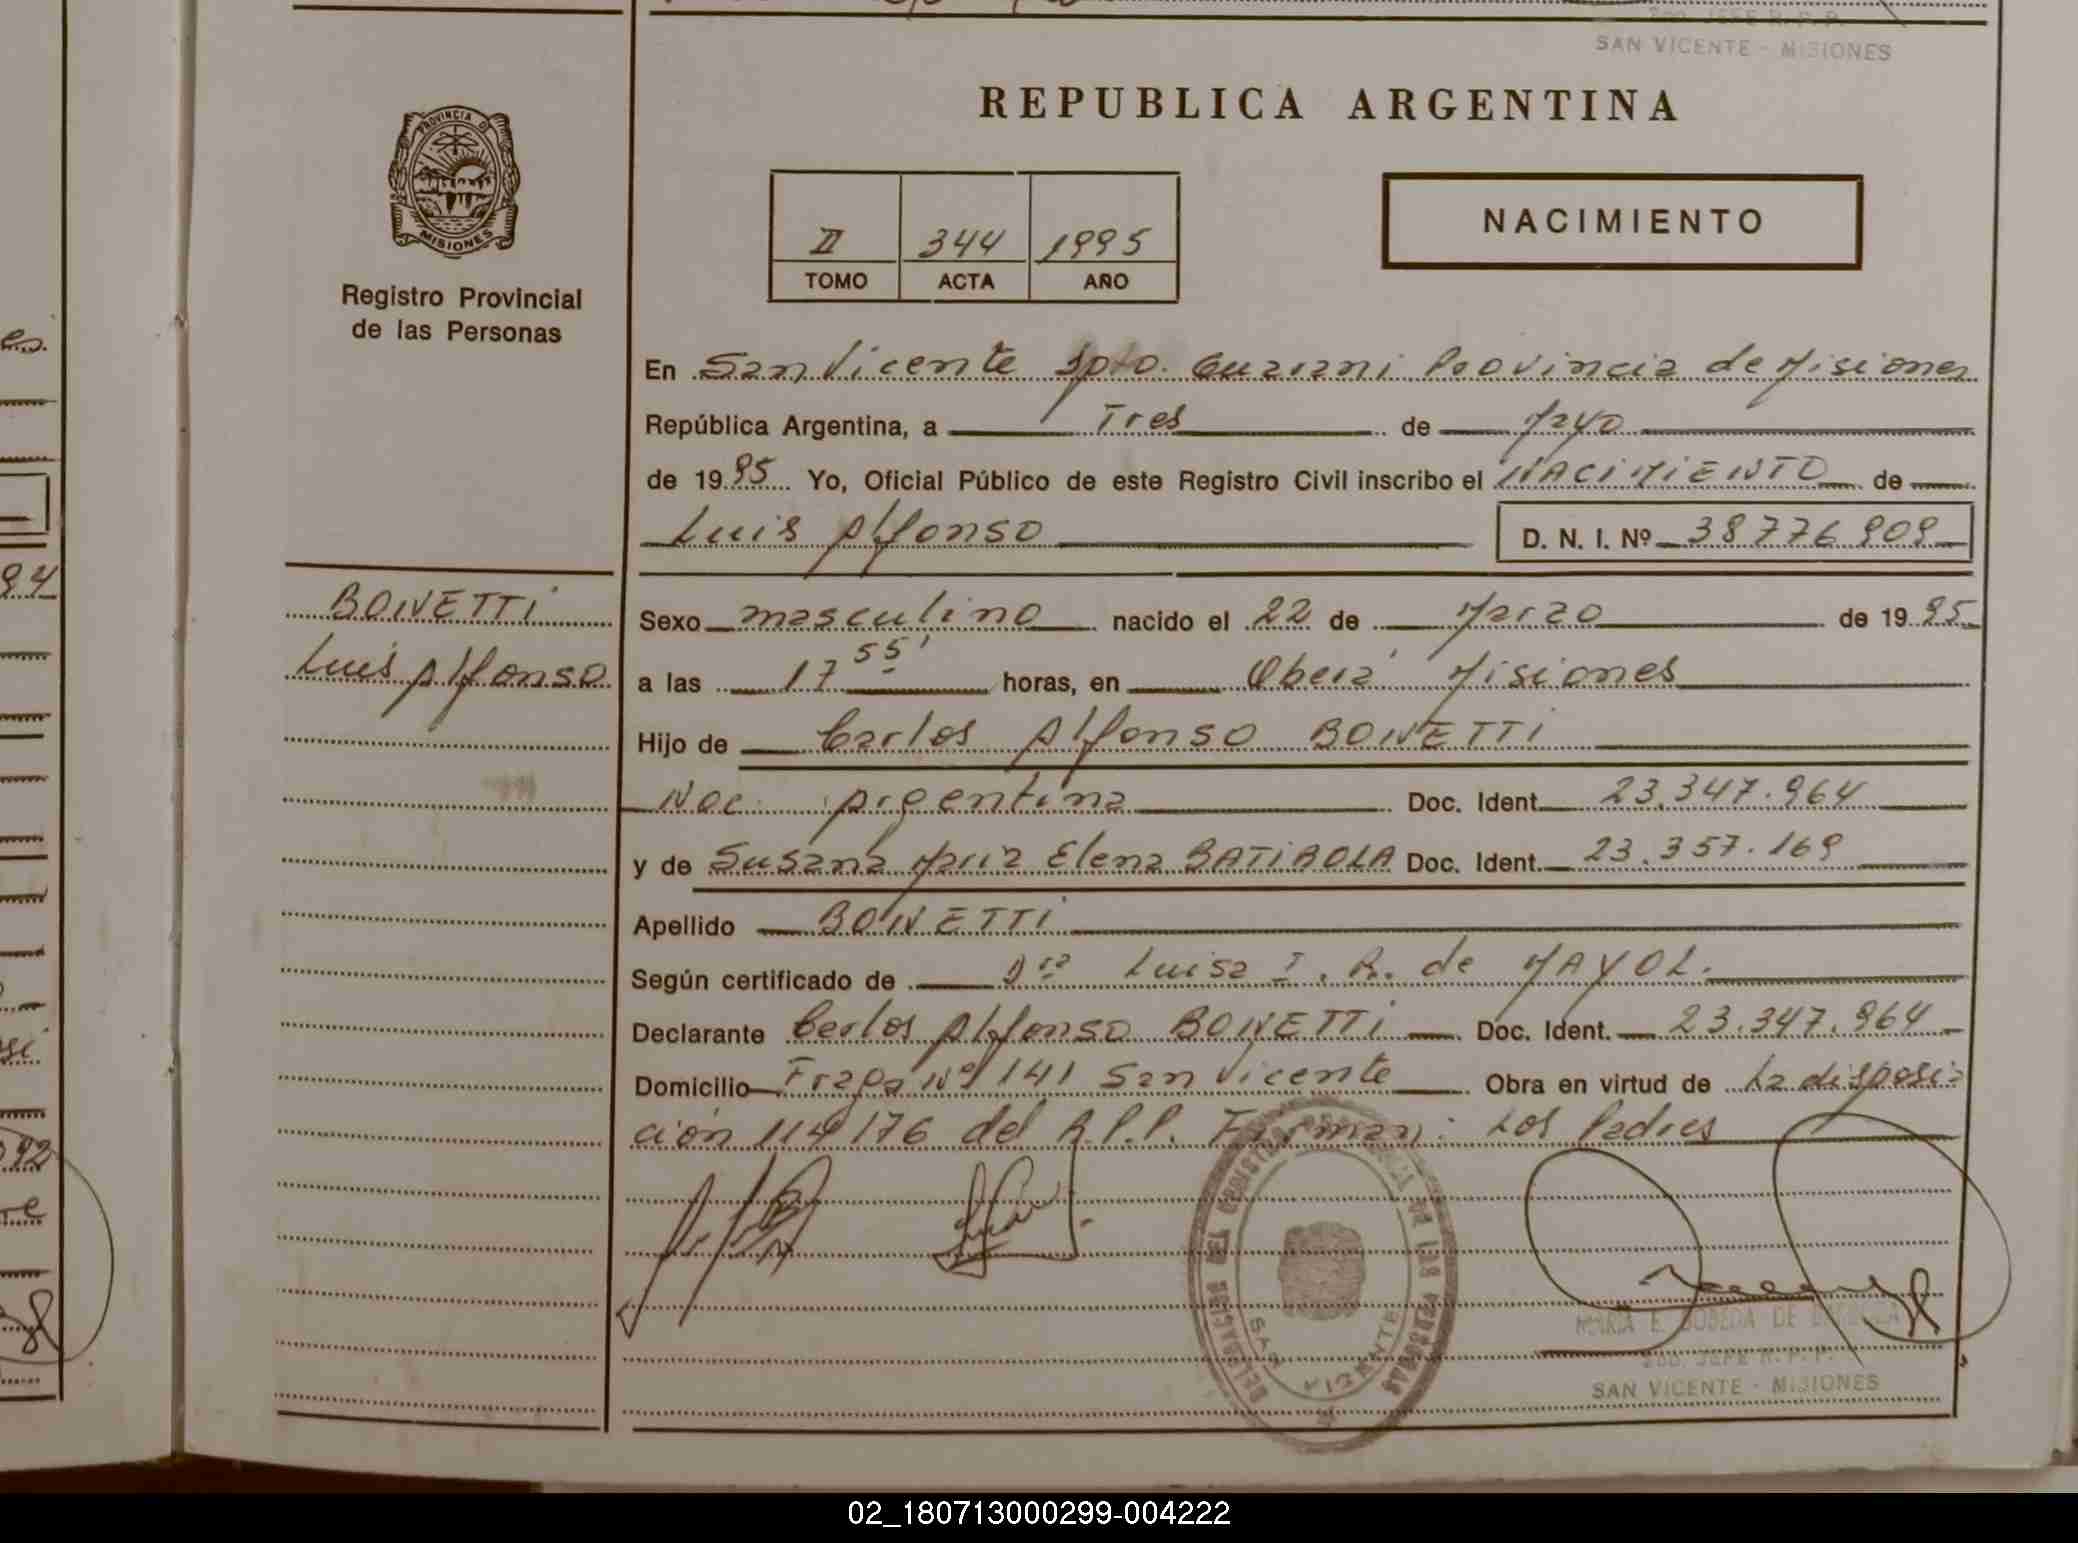 SAN VICENTE - MISIONES
REPUBLICA ARGENTINA
PROVINCIA D
MISIONES
Registro Provincial
de las Personas
II 344 1995
TOMO ACTA AÑO
NACIMIENTO
En San Vicente Dpto. Guarani Provincia de Misiones
República Argentina, a Tres de Mayo
de 1995 Yo, Oficial Público de este Registro Civil inscribo el NACIMIENTO de
Luis Alfonso D. N. I. Nº 38776909
BONETTI
Luis Alfonso
Sexo masculino nacido el 22 de Marzo de 1995
a las 17 55' horas, en Oberá Misiones
Hijo de Carlos Alfonso BONETTI
Nac. Argentina Doc. Ident. 23.347.964
y de Susana Maria Elena BATIROLA Doc. Ident. 23.357.169
Apellido BONETTI
Según certificado de Dra Luisa I. R. de MAYOL.
Declarante Carlos Alfonso BONETTI Doc. Ident. 23.347.964
Domicilio Fraga Nº 141 San Vicente Obra en virtud de La disposi-
ción 114/76 del R.P.P. Firman: Los Padres
DELEGACION DEL REGISTRO PROVINCIAL DE LAS PERSONAS
SAN VICENTE
MARIA E. DE
2do. JEFE R. P. P.
SAN VICENTE - MISIONES
02_180713000299-004222